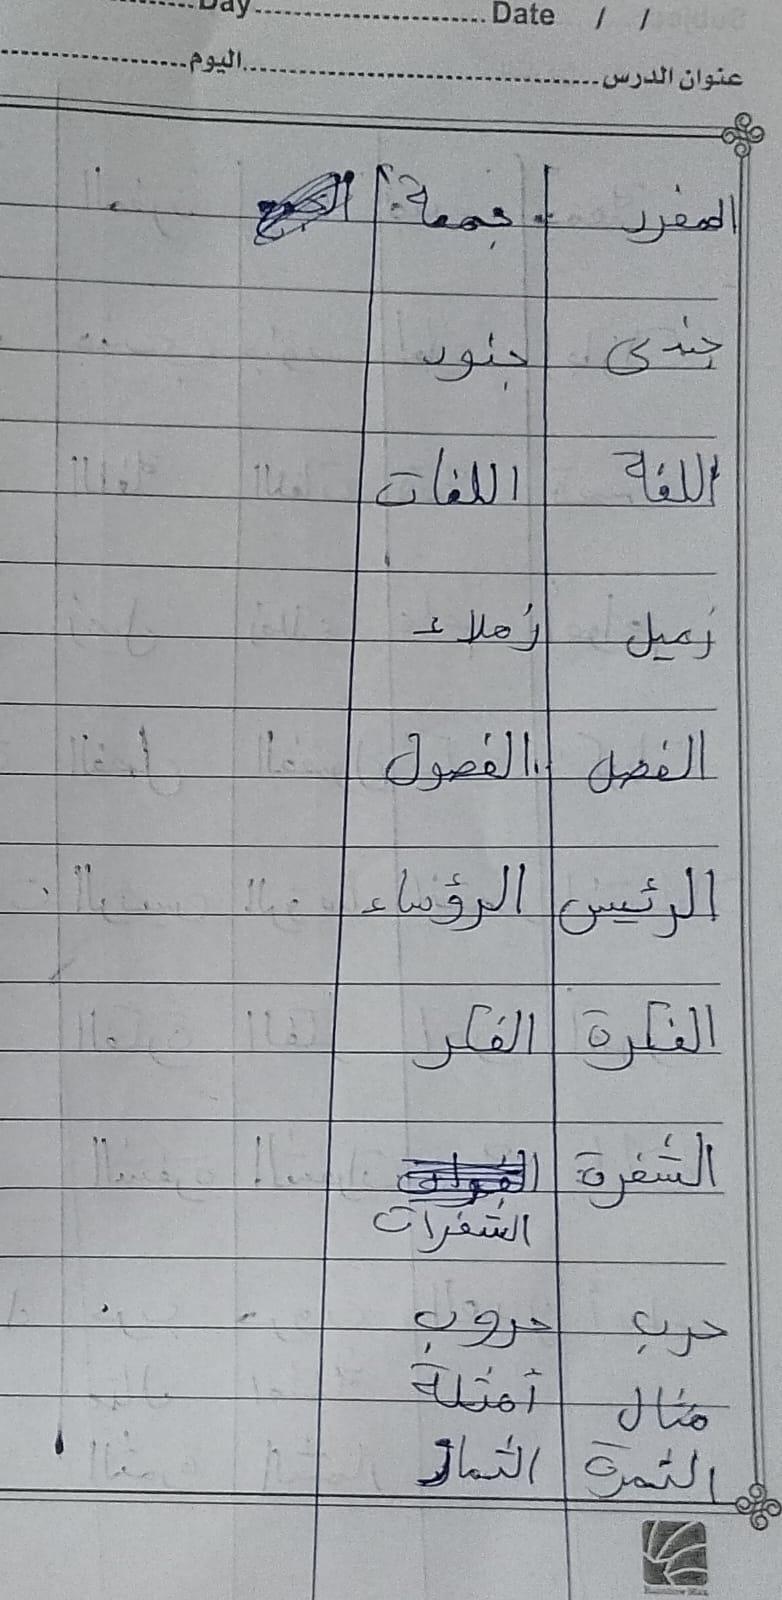 Day Date / /
عنوان الدرس اليوم
المفرد جمعة
جندى جنود
اللغة اللغات
زميل زملاء
الفصل الفصول
الرئيس الرؤساء
الفكرة الفكر
الشفرة
الشفرات
حرب حروب
مثال أمثلة
الثمرة الثمار